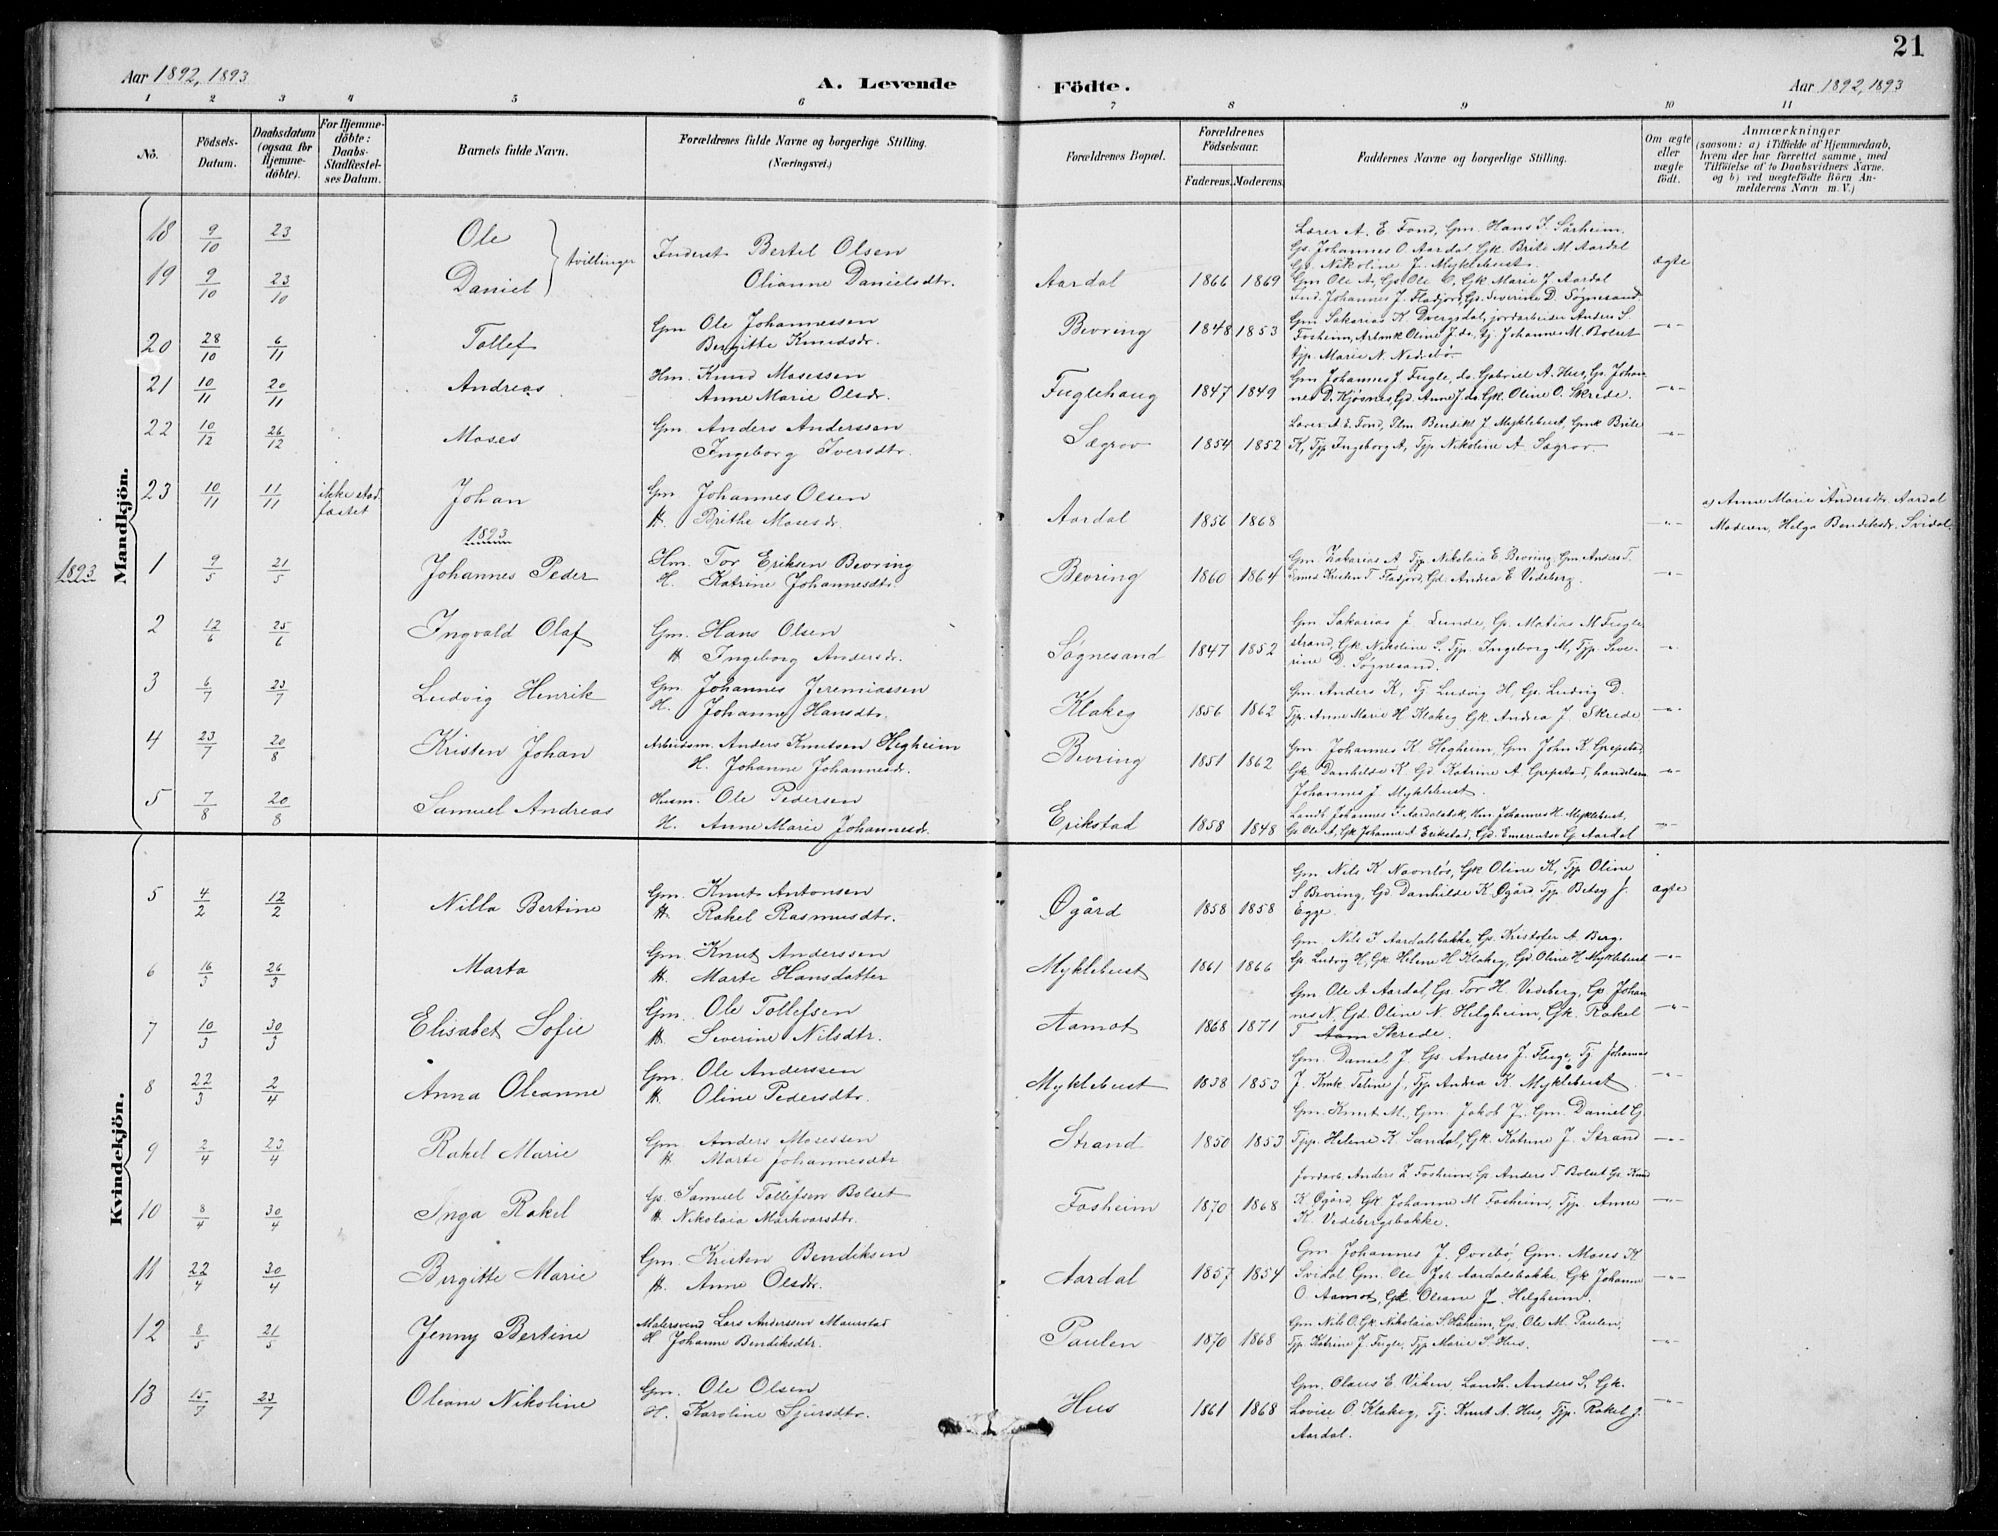 21
Aar 1892, 1893
A. Levende
Födte.
Aar 1892, 1893
1 2 3 4 5 6 7 8 9 10 11
No.
Födsels-Datum.
Daabsdatum (ogsaa for Hjemme-döbte).
For Hjemme-döbte: Daabs-Stadfæstel-ses Datum.
Barnets fulde Navn.
Forældrenes fulde Navne og borgerlige Stilling.
(Næringsvei.)
Forældrenes Bopæl.
Forældrenes Födselsaar.
Faderens. Moderens.
Faddernes Navne og borgerlige Stilling.
Om ægte eller uægte födt.
Anmærkninger
(saasom: a) i Tilfælde af Hjemmedaab,
hvem der har forrettet samme, med
Tilföielse af to Daabsvidners Navne.
og b) ved uægtefödte Börn An-
melderens Navn m. V.)
Mandkjön.
18 9/10 23 Ole
19 9/10 23/10 Daniel tvillinger
Inderst Bertel Olsen
Olianne Danielsdtr.
Aardal 1866 1869
Lærer A. E. Fond, Gm. Hans J. Sårheim,
Gs. Johannes O. Aardal Gk. Brite M. Aardal
Gd. Nikoline J. Myklebust.
Gm Ole A, Gs Ole O, Gk Marie J Aardal
Ind. Johannes J. Flasjord, Gd. Severine D. Søgnesand.
ægte
20 28/10 6/11 Tollef
Gm Ole Johannessen
Bergitte Knudsdr.
Bevring 1848 1853
Gm Sakarias K Dvergsdal, jordarbeider Anders S.
Fosheim, Arbmk Oline J. do, tj. Johannes M. Bolset
tjp. Marie N. Nedrebø.
-"-
21 10/11 20/11 Andreas
Hm. Knud Mosessen
Anne Marie Olsdr.
Fuglehaug 1847 1849
Gm Johannes J Fugle, do. Gabriel A. Hus, Gs. Johan
nes D. Kjøsnes, Gd. Anne J. do. Gk. Oline O. Skrede.
-"-
22 10/12 26/12 Moses
Gm. Anders Anderssen
Ingeborg Iversdtr.
Sægrov 1854 1852
Lærer A E. Fond, Plm Bendiks J Myklebust, Gmk Brite
K, Tjp Ingeborg A, Tjp. Nikoline A. Sægrov.
-"-
23 10/11 11/11 ikke stad fæstet Johan
Gm Johannes Olsen
H. Brithe Mosesdr.
Aardal 1856 1868
-"-
a) Anne Marie Andersdtr. Aardal
Moderen, Helga Bendiksdr. Svidal.
1893
1893
1 9/5 21/5 Johannes Peder
Hm. Tor Eriksen Bevring
H. Katrine Johannesdtr.
Bevring 1860 1864
Gm. Zakarias A Tjp. Nikolaia E Bevring, Gm Anders T.
Kristen T. Flasjord, Gd. Andrea E Vedeberg.
-"-
2 12/6 25/6 Ingvald Olaf
Gm. Hans Olsen
H Ingeborg Andersdr.
Søgnesand 1847 1852
Gm Sakarias J Lunde, Gs. Matias M Fugle
strand, Gk Nikoline S, Tjp. Ingeborg M, Tjp. Seve-
rine D. Søgnesand.
-"-
3 6/7 23/7 Ludvig Henrik
Gm. Johannes Jeremiassen
H. Johanne Hansdtr.
Klakeg 1856 1862
Gm. Anders K, Tj Ludvig H, Gs. Ludvig D.
Tjp. Anne Marie H Klakeg Gk. Andrea J. Skrede
-"-
4 23/7 20/8 Kristen Johan
Arbeidsm. Anders Knutsen Hegheim
H. Johanne Johannesdr.
Bevring 1851 1862
Gm. Johannes K Hegheim, Gm. John K. Grepstad,
Gk Danhilde K Gd. Katrine A. Grepstad, handelsm
Johannes J. Myklebust.
-"-
5 7/8 20/8 Samuel Andreas
Husm. Ole Pedersen
H. Anne Marie Johannesdr.
Erikstad 1858 1848
Landh. Johannes J. Aardalsbk, Hm Johannes H. Myklebust,
Gs Ole A, Gk Johanne A Erikstad, Gd. Emerentse G Aardal
-"-
Kvindekjön.
5 4/2 12/2 Nilla Bertine
Gm. Knut Antonsen
H. Rakel Rasmusdtr.
Øgård 1858 1858
Gm. Nils K Navnløs, Gk Oline K, Tjp Oline
S Bevring, Gd Danhilde K. Øgård Tjp Betsy J.
Egge
ægte
6 16/3 26/3 Marta
Gm. Knut Anderssen
H. Marte Hansdatter
Myklebust 1861 1866
Gm. Nils J. Aardalsbakke, Gs. Kristofer A Berg.
Gs. Ludvig H, Gk. Helene H Klakeg, Gd. Oline H Myklebust
-"-
7 10/3 30/3 Elisabet Sofie
Gm. Ole Tollefsen
H. Severine Nilsdtr.
Aamot 1868 1871
Gm. Ole A Aardal, Gs. Tor H. Vedeberg, Gs Johan
nes N. Gd. Oline N. Helgheim, Gk. Rakel
T. Aam Skrede.
-"-
8 22/3 2/4 Anna Oleanne
Gm. Ole Anderssen
H. Oline Pedersdtr.
Myklebust 1838 1853
Gm. Daniel J, Gs. Anders J. Fluge, Tj. Johannes
J. Kmk Taline J, Tjp Andrea K. Myklebust
-"-
9 2/4 23/4 Rakel Marie
Gm. Anders Mosessen
H. Marte Johannesdtr
Strand 1850 1853
Gm. Knut M., Gm. Jakob J, Gm. Daniel G.
Tjp. Helene K Sandal, Gk. Katrine J. Strand
-"-
10 8/4 30/4 Inga Rakel
Gs. Samuel Tollefsen Bolset
H. Nikolaia Markvarsdtr.
Fosheim 1870 1868
Jordarb. Anders Z Fosheim, Gs Anders T Bolset Gs Knud
K Øgård, Gk Johanne M Fosheim, Tjp. Anne
K. Vedebergsbakke.
-"-
11 22/4 30/4 Birgitte Marie
Gm. Kristen Bendiksen
H. Anne Olsdtr.
Aardal 1857 1854
Gm. Johannes J. Øvrebø, Gm. Moses K
Svidal Gm. Ole Joh Aardalsbakke, Gk Johanne
O. Aamot, Gk. Oleane J. Helgheim.
-"-
12 8/5 21/5 Jenny Bertine
Malersvend Lars Anderssen Maurstad
H. Johanne Bendiksdtr.
Paulen 1870 1868
Gm Nils O. Gk. Nikolaia S. Håheim, Gs. Ole M. Paulen,
Tjp. Katrine J. Fugle, Tjp Marie S. Hus.
-"-
13 15/7 23/7 Oleane Nikoline
Gm. Ole Olsen
H. Karoline Sjursdtr.
Hus 1861 1868
Gm. Olaus E. Viken, Landh. Anders S, Gk.
Lovise O. Klakeg, Tj. Knut A. Hus, Tjp. Rakel J.
Aardal.
-"-